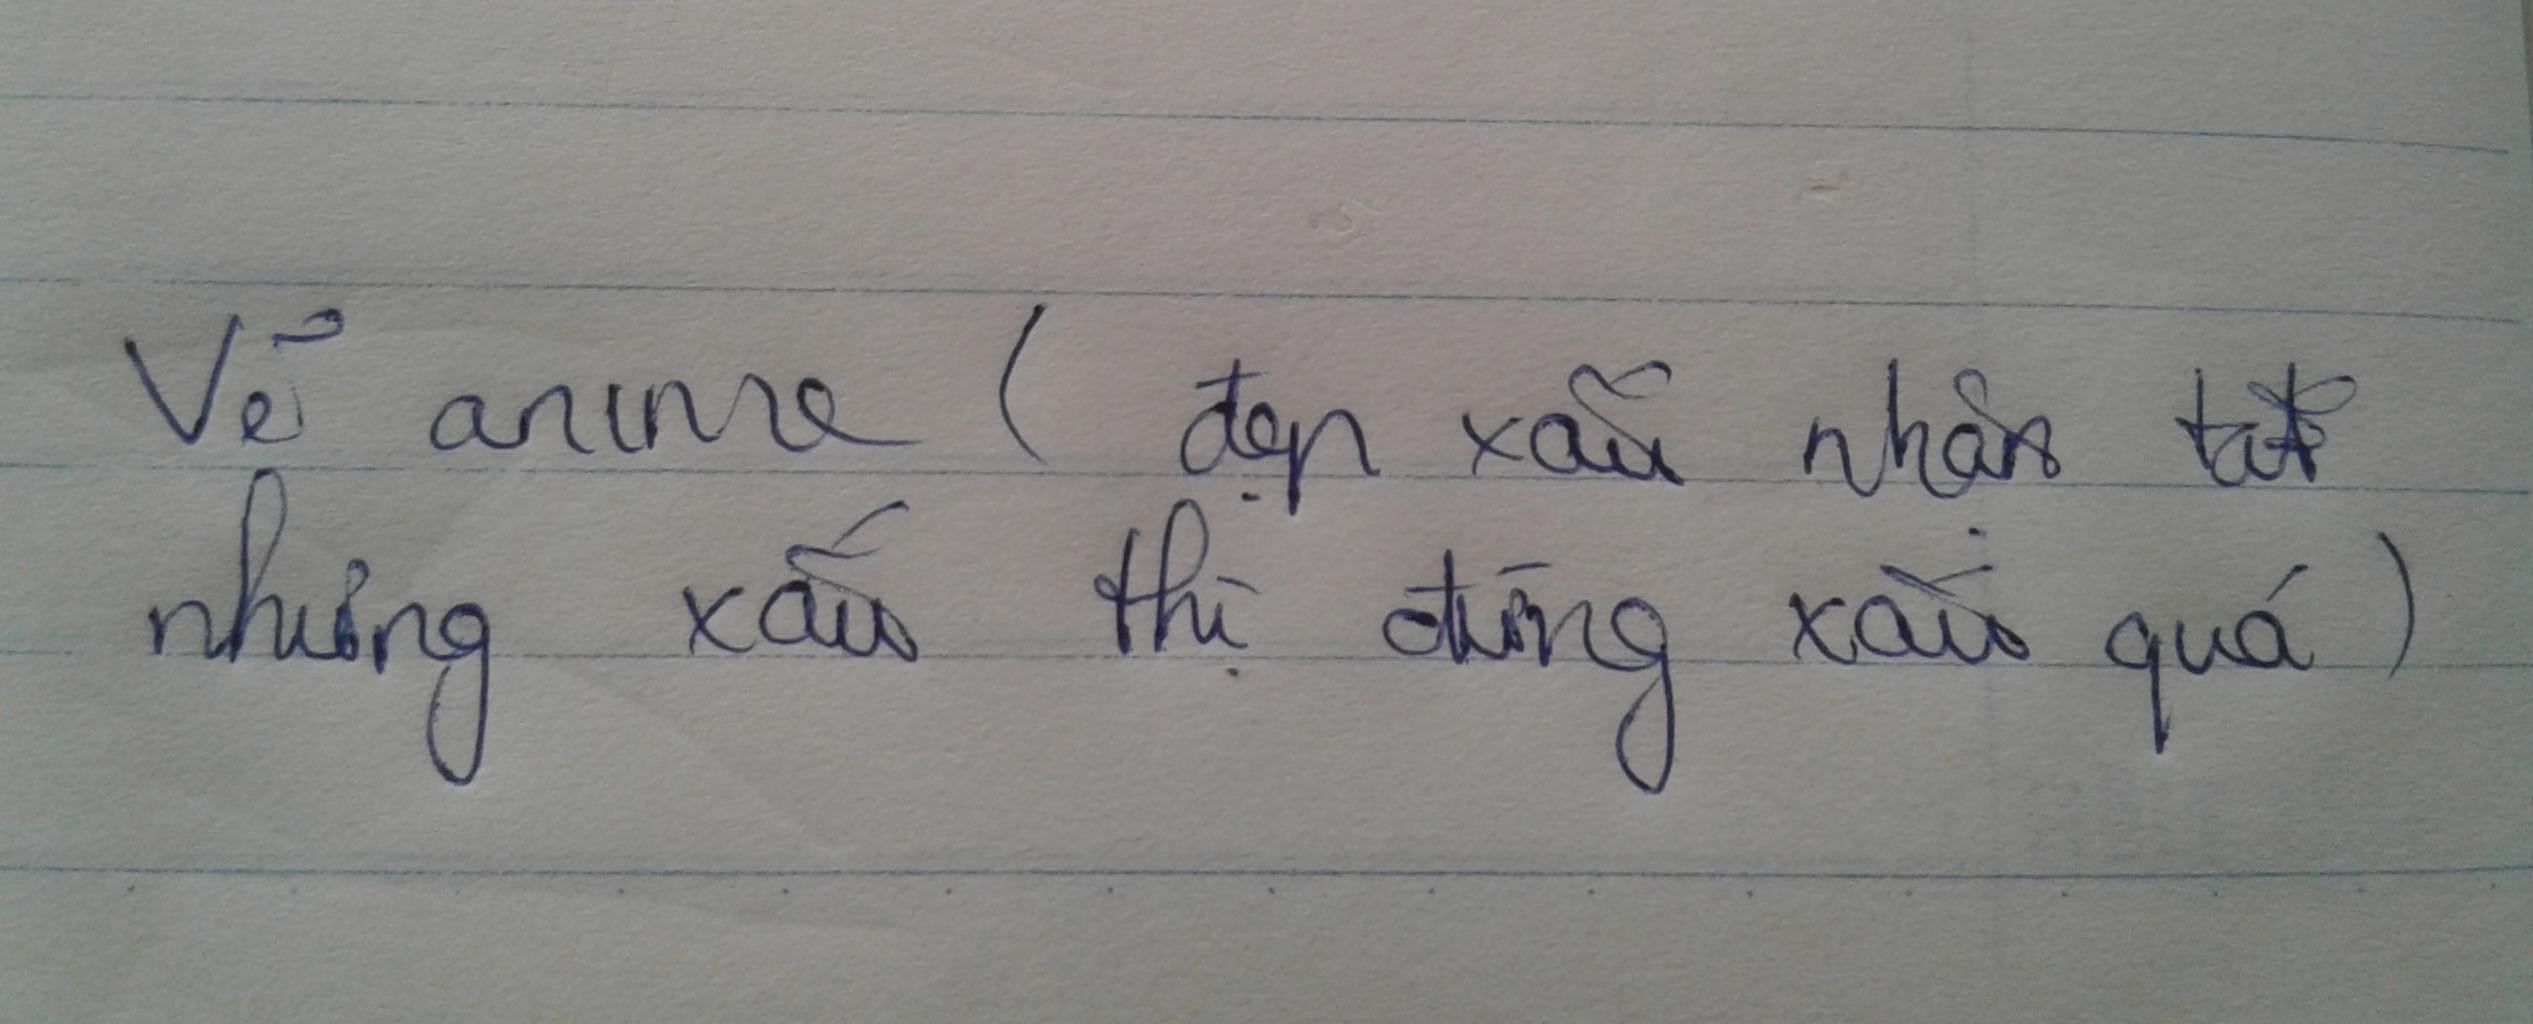 Vẽ anime ( đẹp xấu nhận tất
nhưng xấu thì đừng xấu quá )